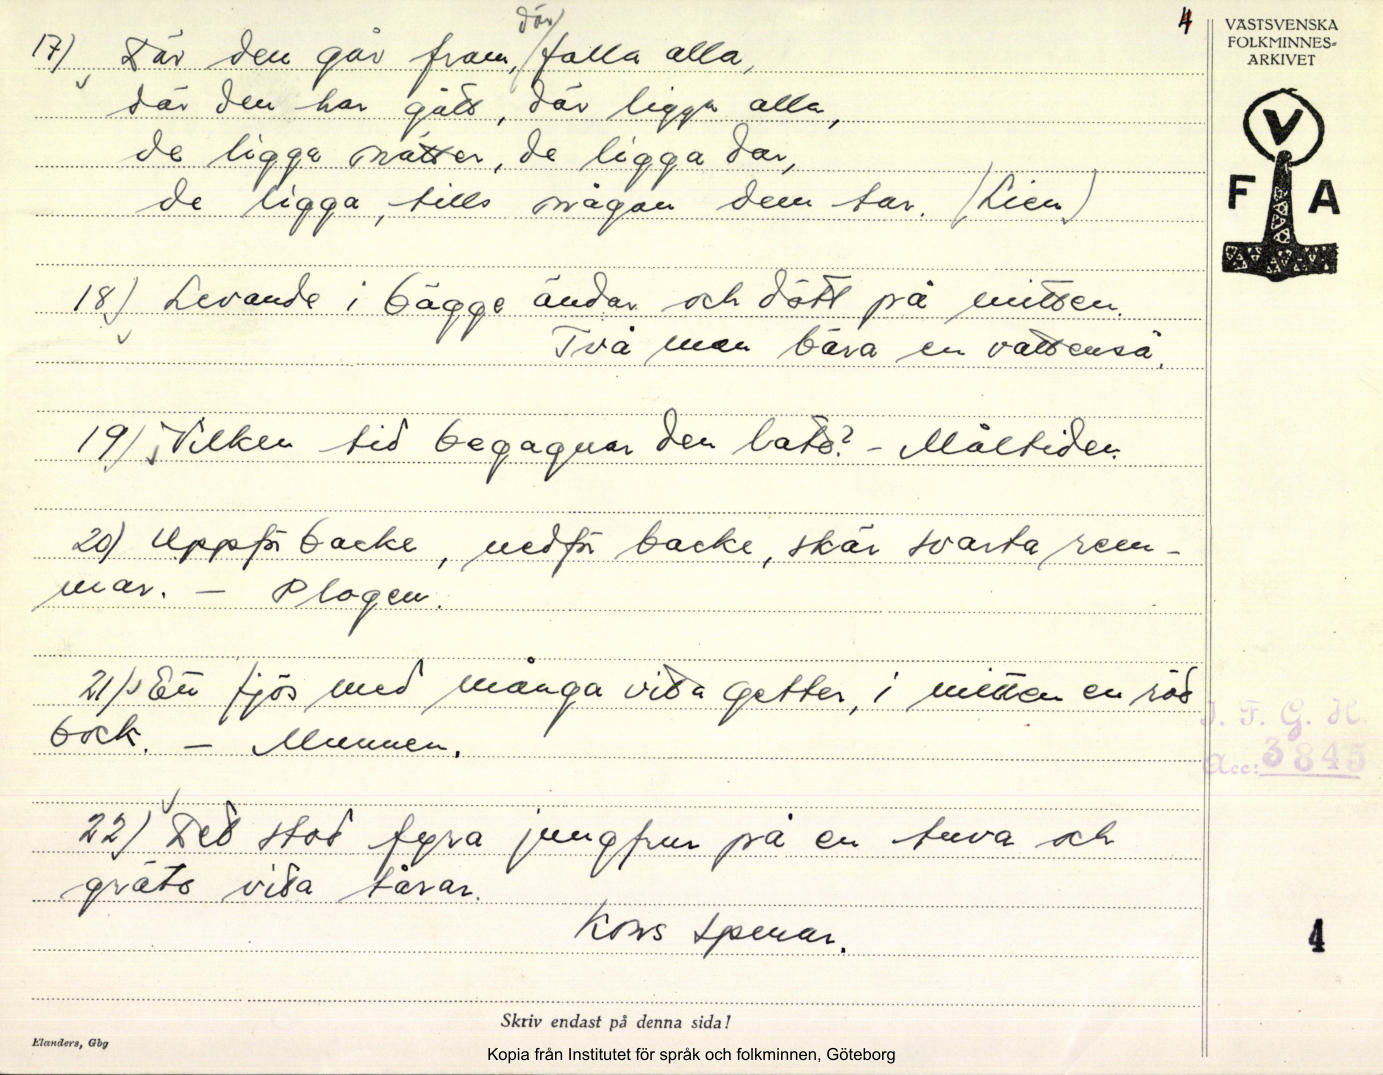 4
VÄSTSVENSKA
FOLKMINNES-
ARKIVET
V
F A
där
17) Där den går fram, falla alla,
där den har gått, där ligga alla,
de ligga nätter, de ligga dar,
de ligga, tills någon dem tar. (Lien)
18) Levande i bägge ändar och dött på mitten.
Två män bära en vattenså.
19) Vilken tid begagnar den late? - Måltiden.
20) Uppför backe, nedför backe, skär svarta rem-
mar. - Plogen.
21) Ett fjös med många vita getter, i mitten en röd
bock. - Munnen.
I. F. G. H.
Acc: 3845
22) Det stod fyra jungfrur på en tuva och
gräto vita tårar.
Kons spenar.
4
Skriv endast på denna sida!
Elanders, Gbg
Kopia från Institutet för språk och folkminnen, Göteborg